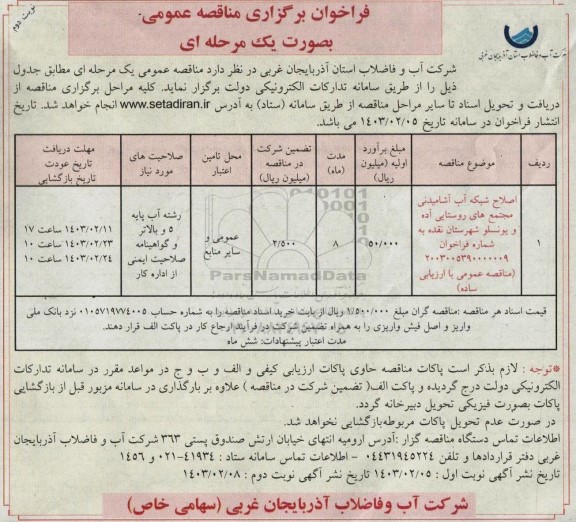 نوبت دوم
فراخوان برگزاری مناقصه عمومی
بصورت یک مرحله ای
شرکت آب و فاضلاب استان آذربایجان غربی
شرکت آب و فاضلاب استان آذربایجان غربی در نظر دارد مناقصه عمومی یک مرحله ای مطابق جدول
ذیل را از طریق سامانه تدارکات الکترونیکی دولت برگزار نماید. کلیه مراحل برگزاری مناقصه از
دریافت و تحویل اسناد تا سایر مراحل مناقصه از طریق سامانه (ستاد) به آدرس www.setadiran.ir انجام خواهد شد. تاریخ
انتشار فراخوان در سامانه تاریخ ۱۴۰۳/۰۲/۰۵ می باشد.
ردیف
موضوع مناقصه
مبلغ برآورد
اولیه (میلیون
ریال)
مدت
(ماه)
تضمین شرکت
در مناقصه
(میلیون ریال)
محل تامین
اعتبار
صلاحیت های
مورد نیاز
مهلت دریافت
تاریخ عودت
تاریخ بازگشایی
۱
اصلاح شبکه آب آشامیدنی
مجتمع های روستایی آده
و یونسلو شهرستان نقده به
شماره فراخوان
۲۰۰۳۰۰۵۳۹۰۰۰۰۰۰۹
(مناقصه عمومی با ارزیابی
ساده)
۵۰/۰۰۰
۸
۲/۵۰۰
عمومی و
سایر منابع
رشته آب پایه
۵ و بالاتر
و گواهینامه
صلاحیت ایمنی
از اداره کار
۱۴۰۳/۰۲/۱۱ ساعت ۱۷
۱۴۰۳/۰۲/۲۳ ساعت ۱۰
۱۴۰۳/۰۲/۲۴ ساعت ۱۰
ParsNamadData
قیمت اسناد هر مناقصه :مناقصه گران مبلغ ۱/۵۰۰/۰۰۰ ریال از بابت خرید اسناد مناقصه را به شماره حساب ۰۱۰۵۷۱۹۷۷۴۰۰۵ نزد بانک ملی
واریز و اصل فیش واریزی را به همراه تضمین شرکت در فرآیند ارجاع کار در پاکت الف قرار دهند.
مدت اعتبار پیشنهادات: شش ماه
*توجه : لازم بذکر است پاکات مناقصه حاوی پاکات ارزیابی کیفی و الف و ب و ج در مواعد مقرر در سامانه تدارکات
الکترونیکی دولت درج گردیده و پاکت الف( تضمین شرکت در مناقصه ) علاوه بر بارگذاری در سامانه مزبور قبل از بازگشایی
پاکات بصورت فیزیکی تحویل دبیرخانه گردد.
در صورت عدم تحویل پاکات مربوطه‌بازگشایی نخواهد شد.
اطلاعات تماس دستگاه مناقصه گزار :آدرس ارومیه انتهای خیابان ارتش صندوق پستی ۳۶۳ شرکت آب و فاضلاب آذربایجان
غربی دفتر قراردادها و تلفن ۰۴۴۳۱۹۴۵۲۲۴ - اطلاعات تماس سامانه ستاد : ۴۱۹۳۴-۰۲۱ و ۱۴۵۶
تاریخ نشر آگهی نوبت اول : ۱۴۰۳/۰۲/۰۵ تاریخ نشر آگهی نوبت دوم : ۱۴۰۳/۰۲/۰۸
شرکت آب وفاضلاب آذربایجان غربی (سهامی خاص)